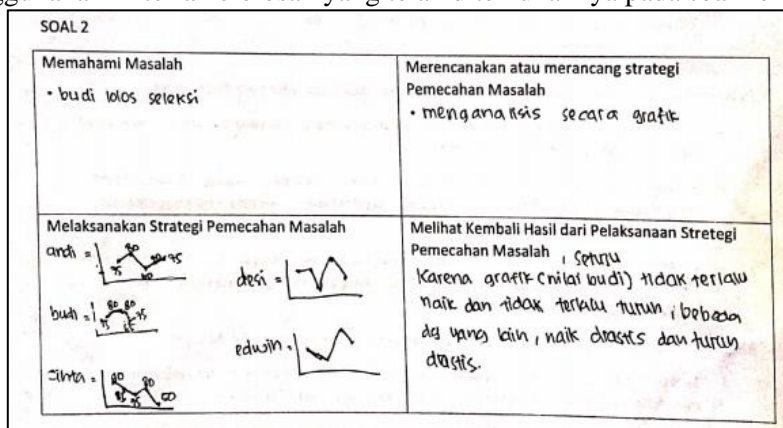 SOAL 2
Memahami Masalah
• budi lolos seleksi
Merencanakan atau merancang strategi
Pemecahan Masalah
• menganalisis secara grafik
Melaksanakan Strategi Pemecahan Masalah
andi =
75 80 75
desi =
budi =
75 80 80 75
edwin =
cinta =
80 80
Melihat Kembali Hasil dari Pelaksanaan Stretegi
Pemecahan Masalah
, setuju
Karena grafik (nilai budi) tidak terlalu
naik dan tidak terlalu turun, bebeda
dg yang lain, naik drastis dan turun
drastis.